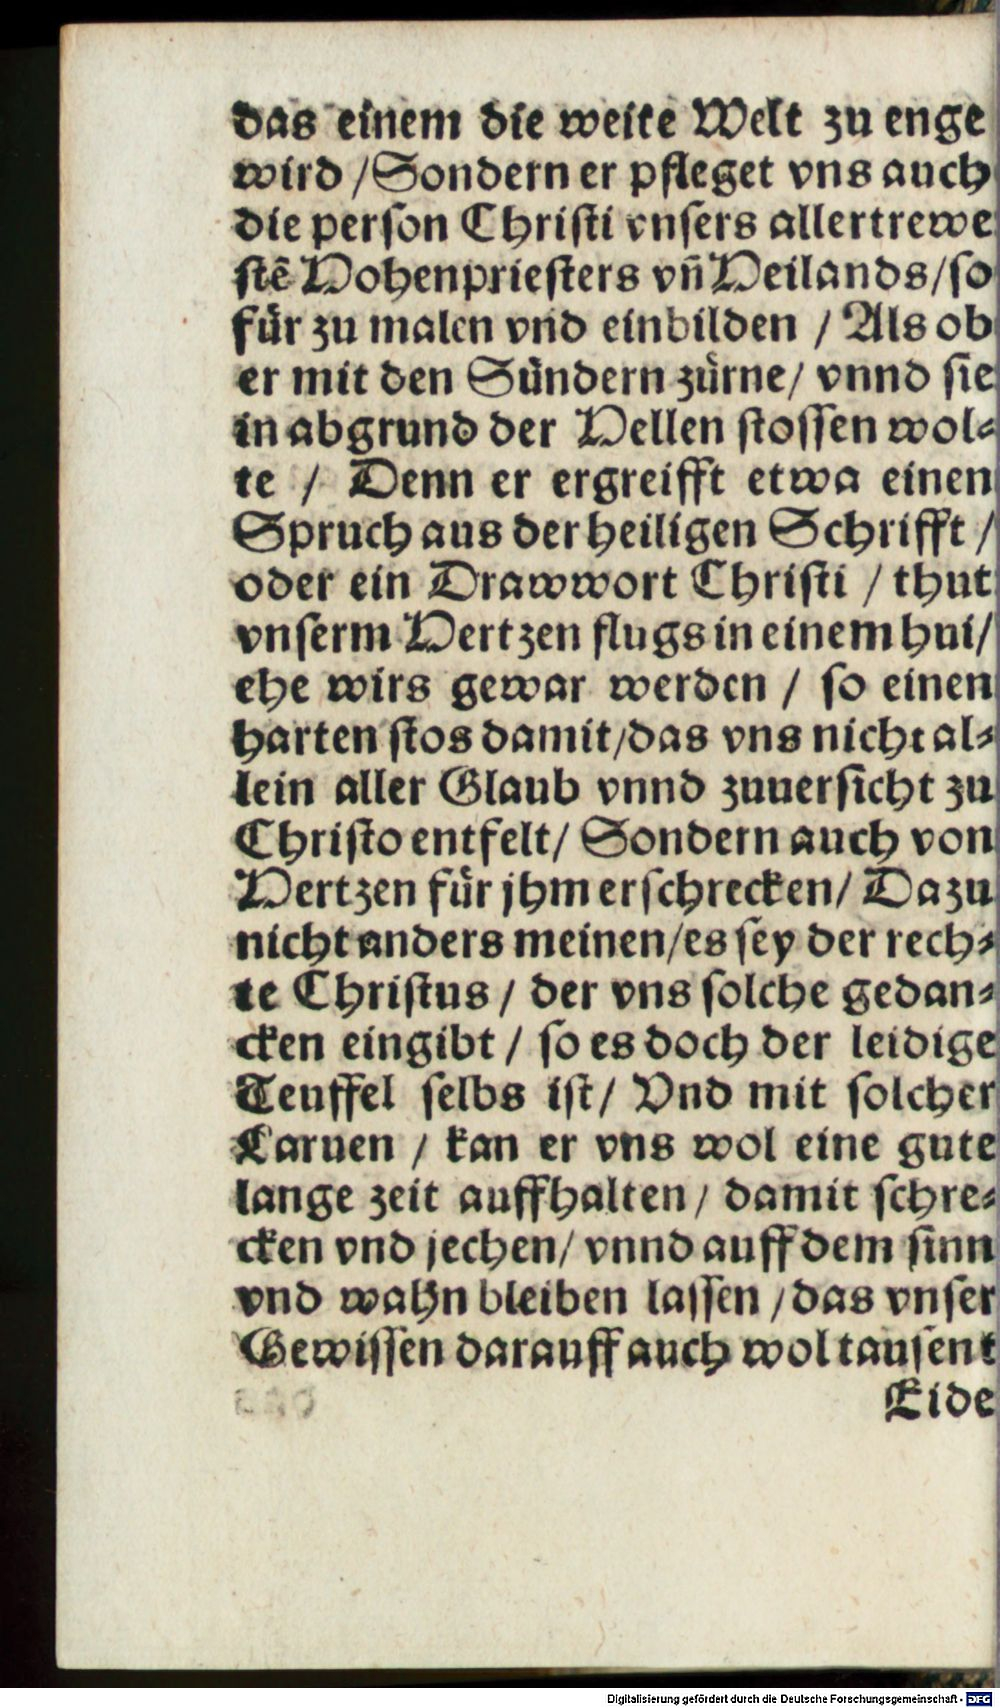 das einem die weite Welt zu enge
wird /Sondern er pfleget vns auch
die perſon Chriſti vnſers allertrewe
ſtē Hohenprieſters vn̄ Heilands/ſo
für zu malen vnd einbilden / Als ob
er mit den Sündern zürne/ vnnd ſie
in abgrund der Hellen ſtoſſen wol⸗
te / Denn er ergreifft etwa einen
Spruch aus der heiligen Schrifft /
oder ein Drawwort Chriſti / thut
vnſerm Hertzen flugs in einem hui/
ehe wirs gewar werden / ſo einen
harten ſtos damit/das vns nicht al⸗
lein aller Glaub vnnd zuuerſicht zu
Chriſto entfelt/ Sondern auch von
Hertzen für jhm erſchrecken/ Dazu
nicht anders meinen/es ſey der rech⸗
te Chriſtus / der vns ſolche gedan⸗
cken eingibt / ſo es doch der leidige
Teuffel ſelbs iſt/ Vnd mit ſolcher
Laruen / kan er vns wol eine gute
lange zeit auffhalten/ damit ſchre⸗
cken vnd jechen/ vnnd auff dem ſinn
vnd wahn bleiben laſſen /das vnſer
Gewiſſen darauff auch wol tauſent
Eide
Digitalisierung gefördert durch die Deutsche Forschungsgemeinschaft - DFG